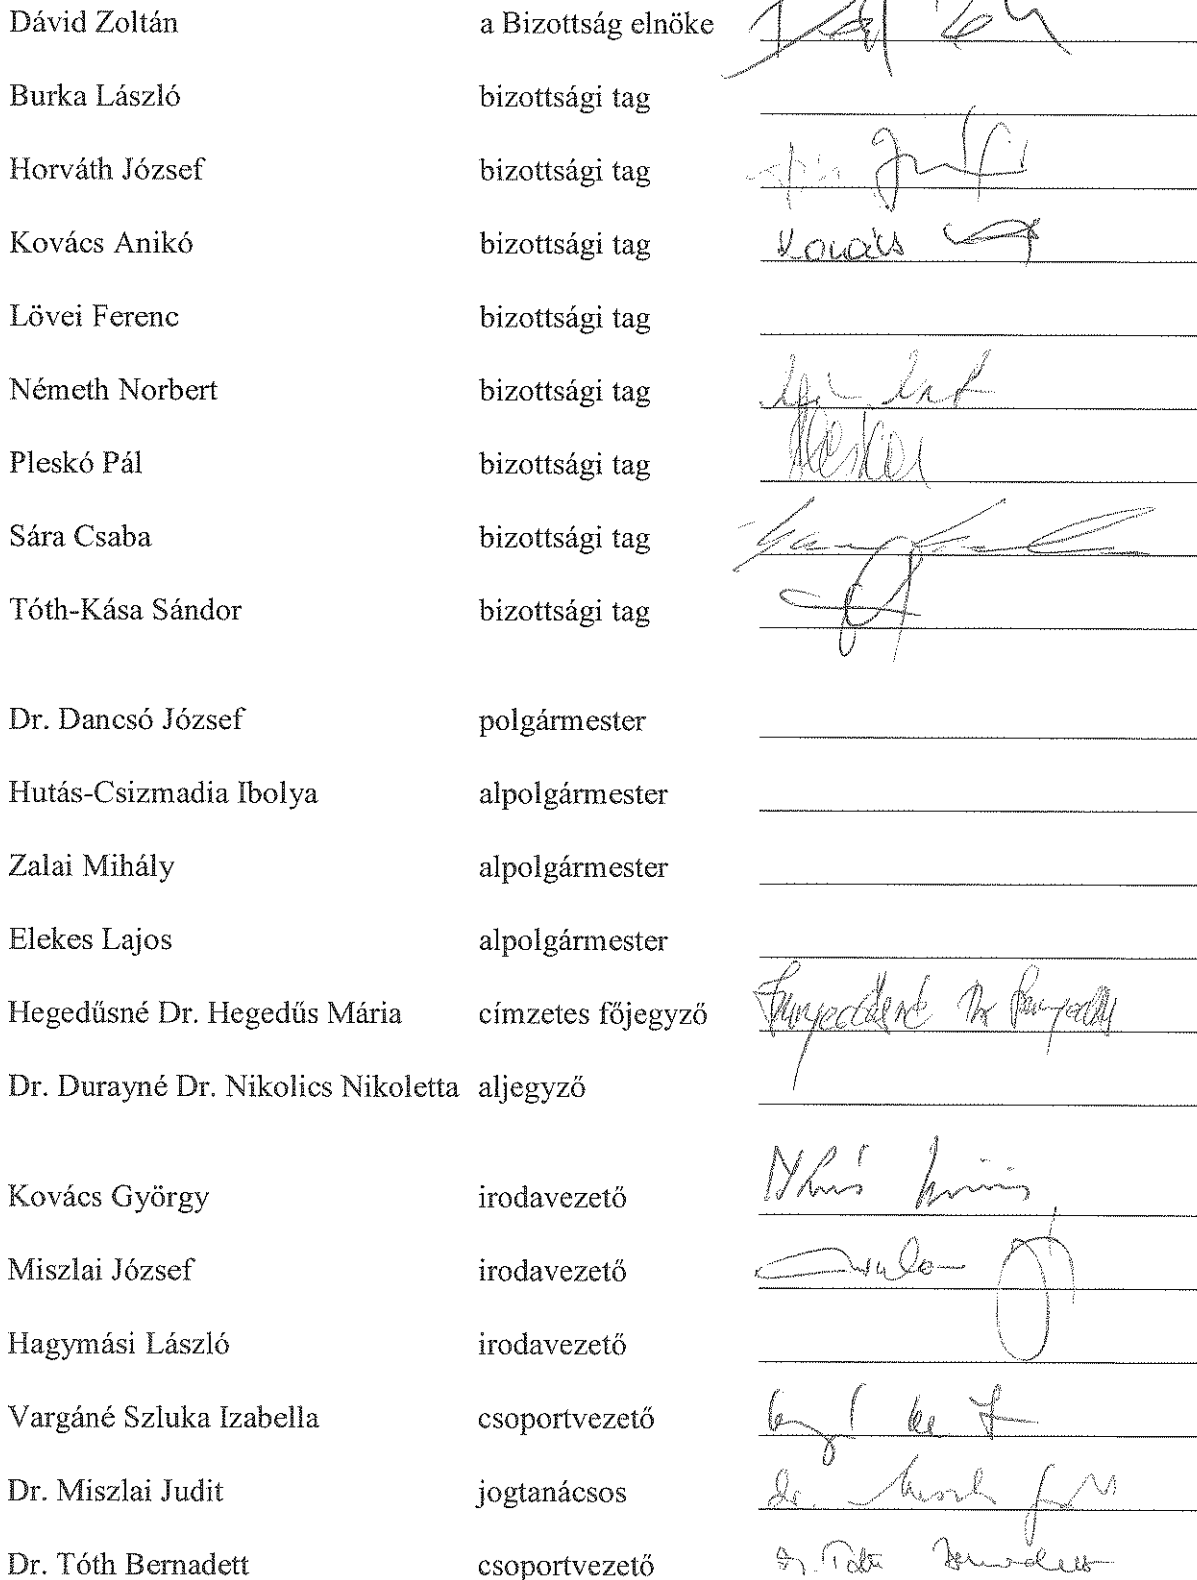 Dávid Zoltán a Bizottság elnöke
Burka László bizottsági tag
Horváth József bizottsági tag
Kovács Anikó bizottsági tag Kovács
Lövei Ferenc bizottsági tag
Németh Norbert bizottsági tag
Pleskó Pál bizottsági tag
Sára Csaba bizottsági tag
Tóth-Kása Sándor bizottsági tag
Dr. Dancsó József polgármester
Hutás-Csizmadia Ibolya alpolgármester
Zalai Mihály alpolgármester
Elekes Lajos alpolgármester
Hegedűsné Dr. Hegedűs Mária címzetes főjegyző
Dr. Durayné Dr. Nikolics Nikoletta aljegyző
Kovács György irodavezető
Miszlai József irodavezető
Hagymási László irodavezető
Vargáné Szluka Izabella csoportvezető
Dr. Miszlai Judit jogtanácsos dr.
Dr. Tóth Bernadett csoportvezető Dr. Tóth Bernadett